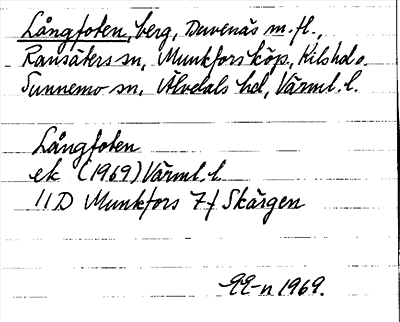 Långfoten, berg, Duvenäs m.fl.,
Ransäters sn, Munkfors köp, Kils hd o.
Sunnemo sn, Älvdals hd, Värml. l.
Långfoten
ek (1969) Värml. l
11D Munkfors 7f Skärgen
1969.